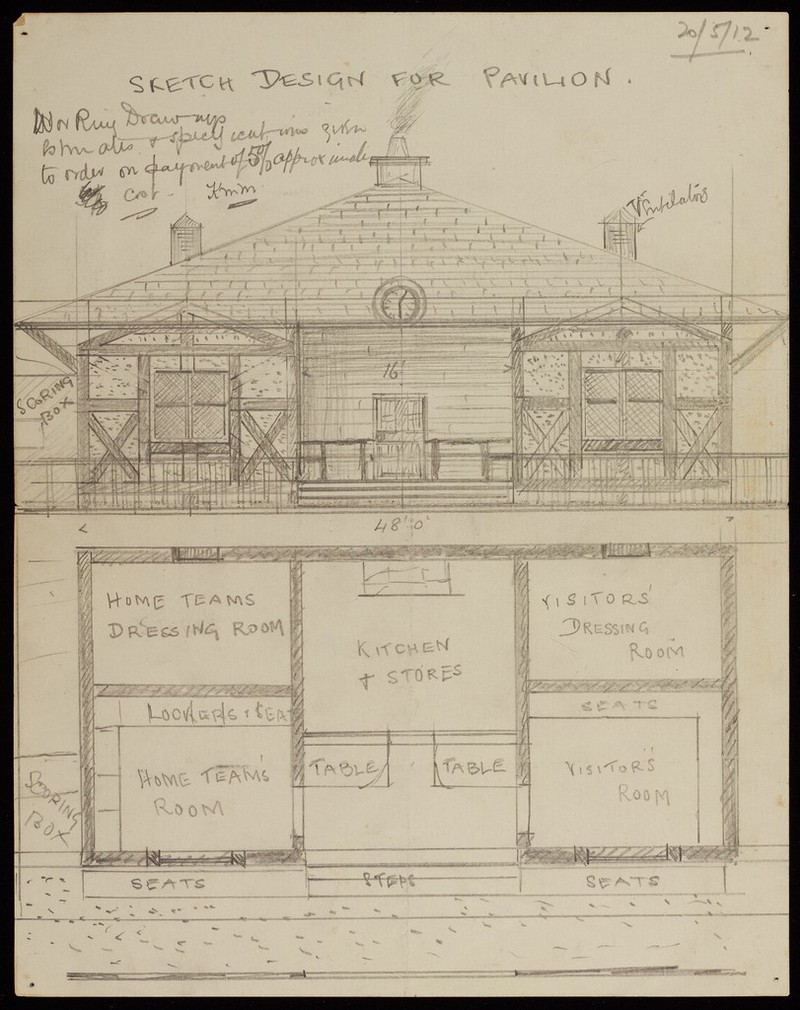 20/5/12
SKETCH DESIGN FOR PAVILION.
Working Drawings
Estimates & specifications given
to order on payment of 5% approximate
cost -
Ventilators
16'
SCORING
BOX
48'.0"
HOME TEAMS
DRESSING ROOM
KITCHEN
& STORES
VISITORS'
DRESSING
ROOM
LOCKERS & SEAT
SEATS
HOME TEAM'S
ROOM
TABLE
TABLE
VISITOR'S
ROOM
SCORING
BOX
SEATS
STEPS
SEATS